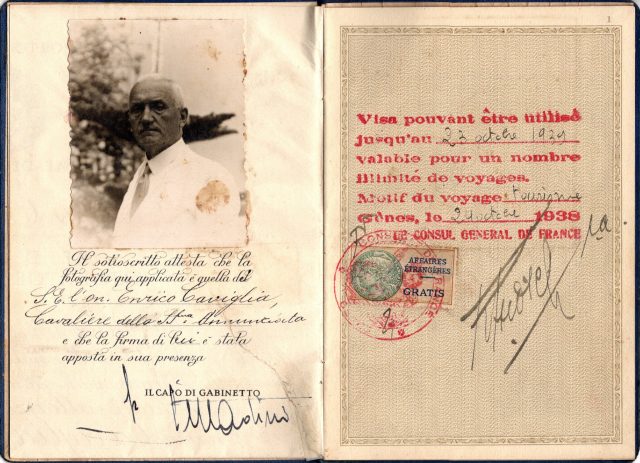 Il sottoscritto attesta che la
fotografia qui applicata è quella del
S. E. l'on. Enrico Caviglia,
Cavaliere della SS.ma Annunziata
e che la firma di è stata
apposta in sua presenza
IL CAPO DI GABINETTO
1
Visa pouvant être utilisé
jusqu'au 23 octobre 1939
valable pour un nombre
illimité de voyages.
Motif du voyage tourisme
Gênes, le 24 octobre 1938
LE CONSUL GENERAL DE FRANCE
AFFAIRES
ÉTRANGÈRES
GRATIS